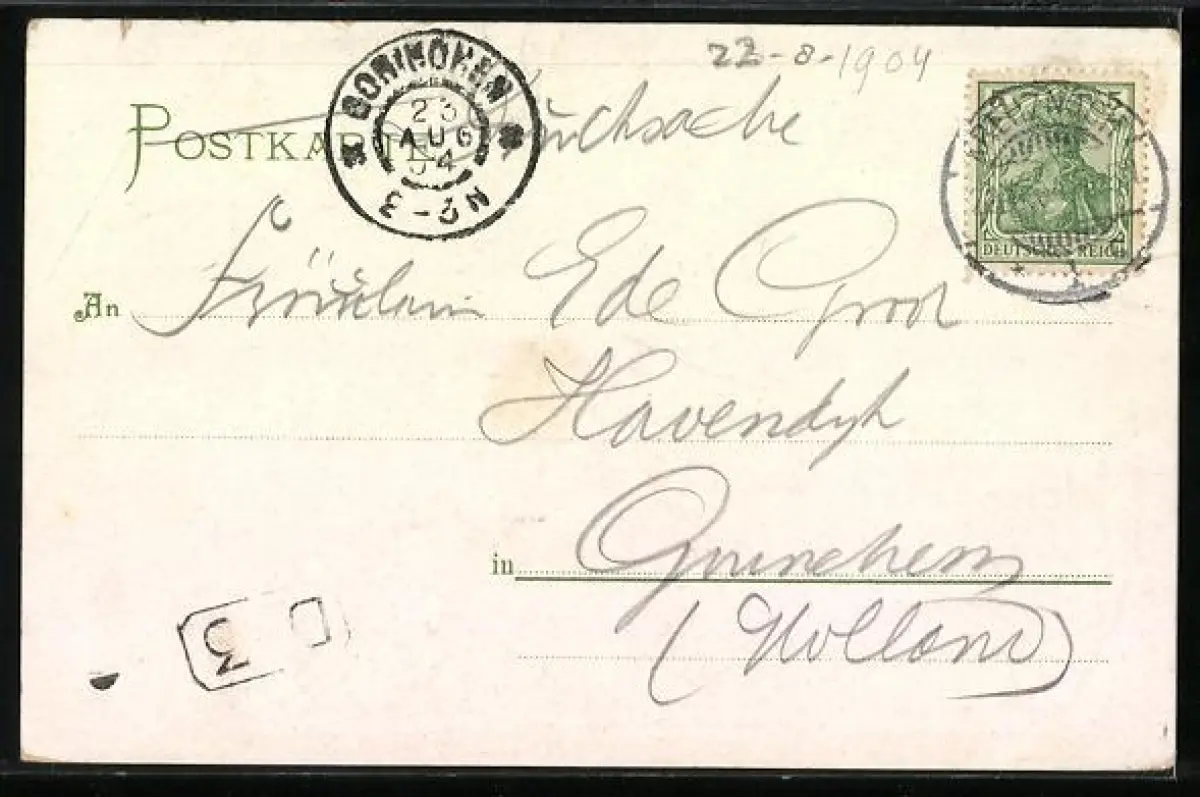 22-8-1904
POSTKARTE Drucksache
GORINCHEM
23
AUG
04
3-4N
DEUTSCHES REICH
An Fräulein Ede Groot
Havendyk
in Gorinchem
(Holland)
3